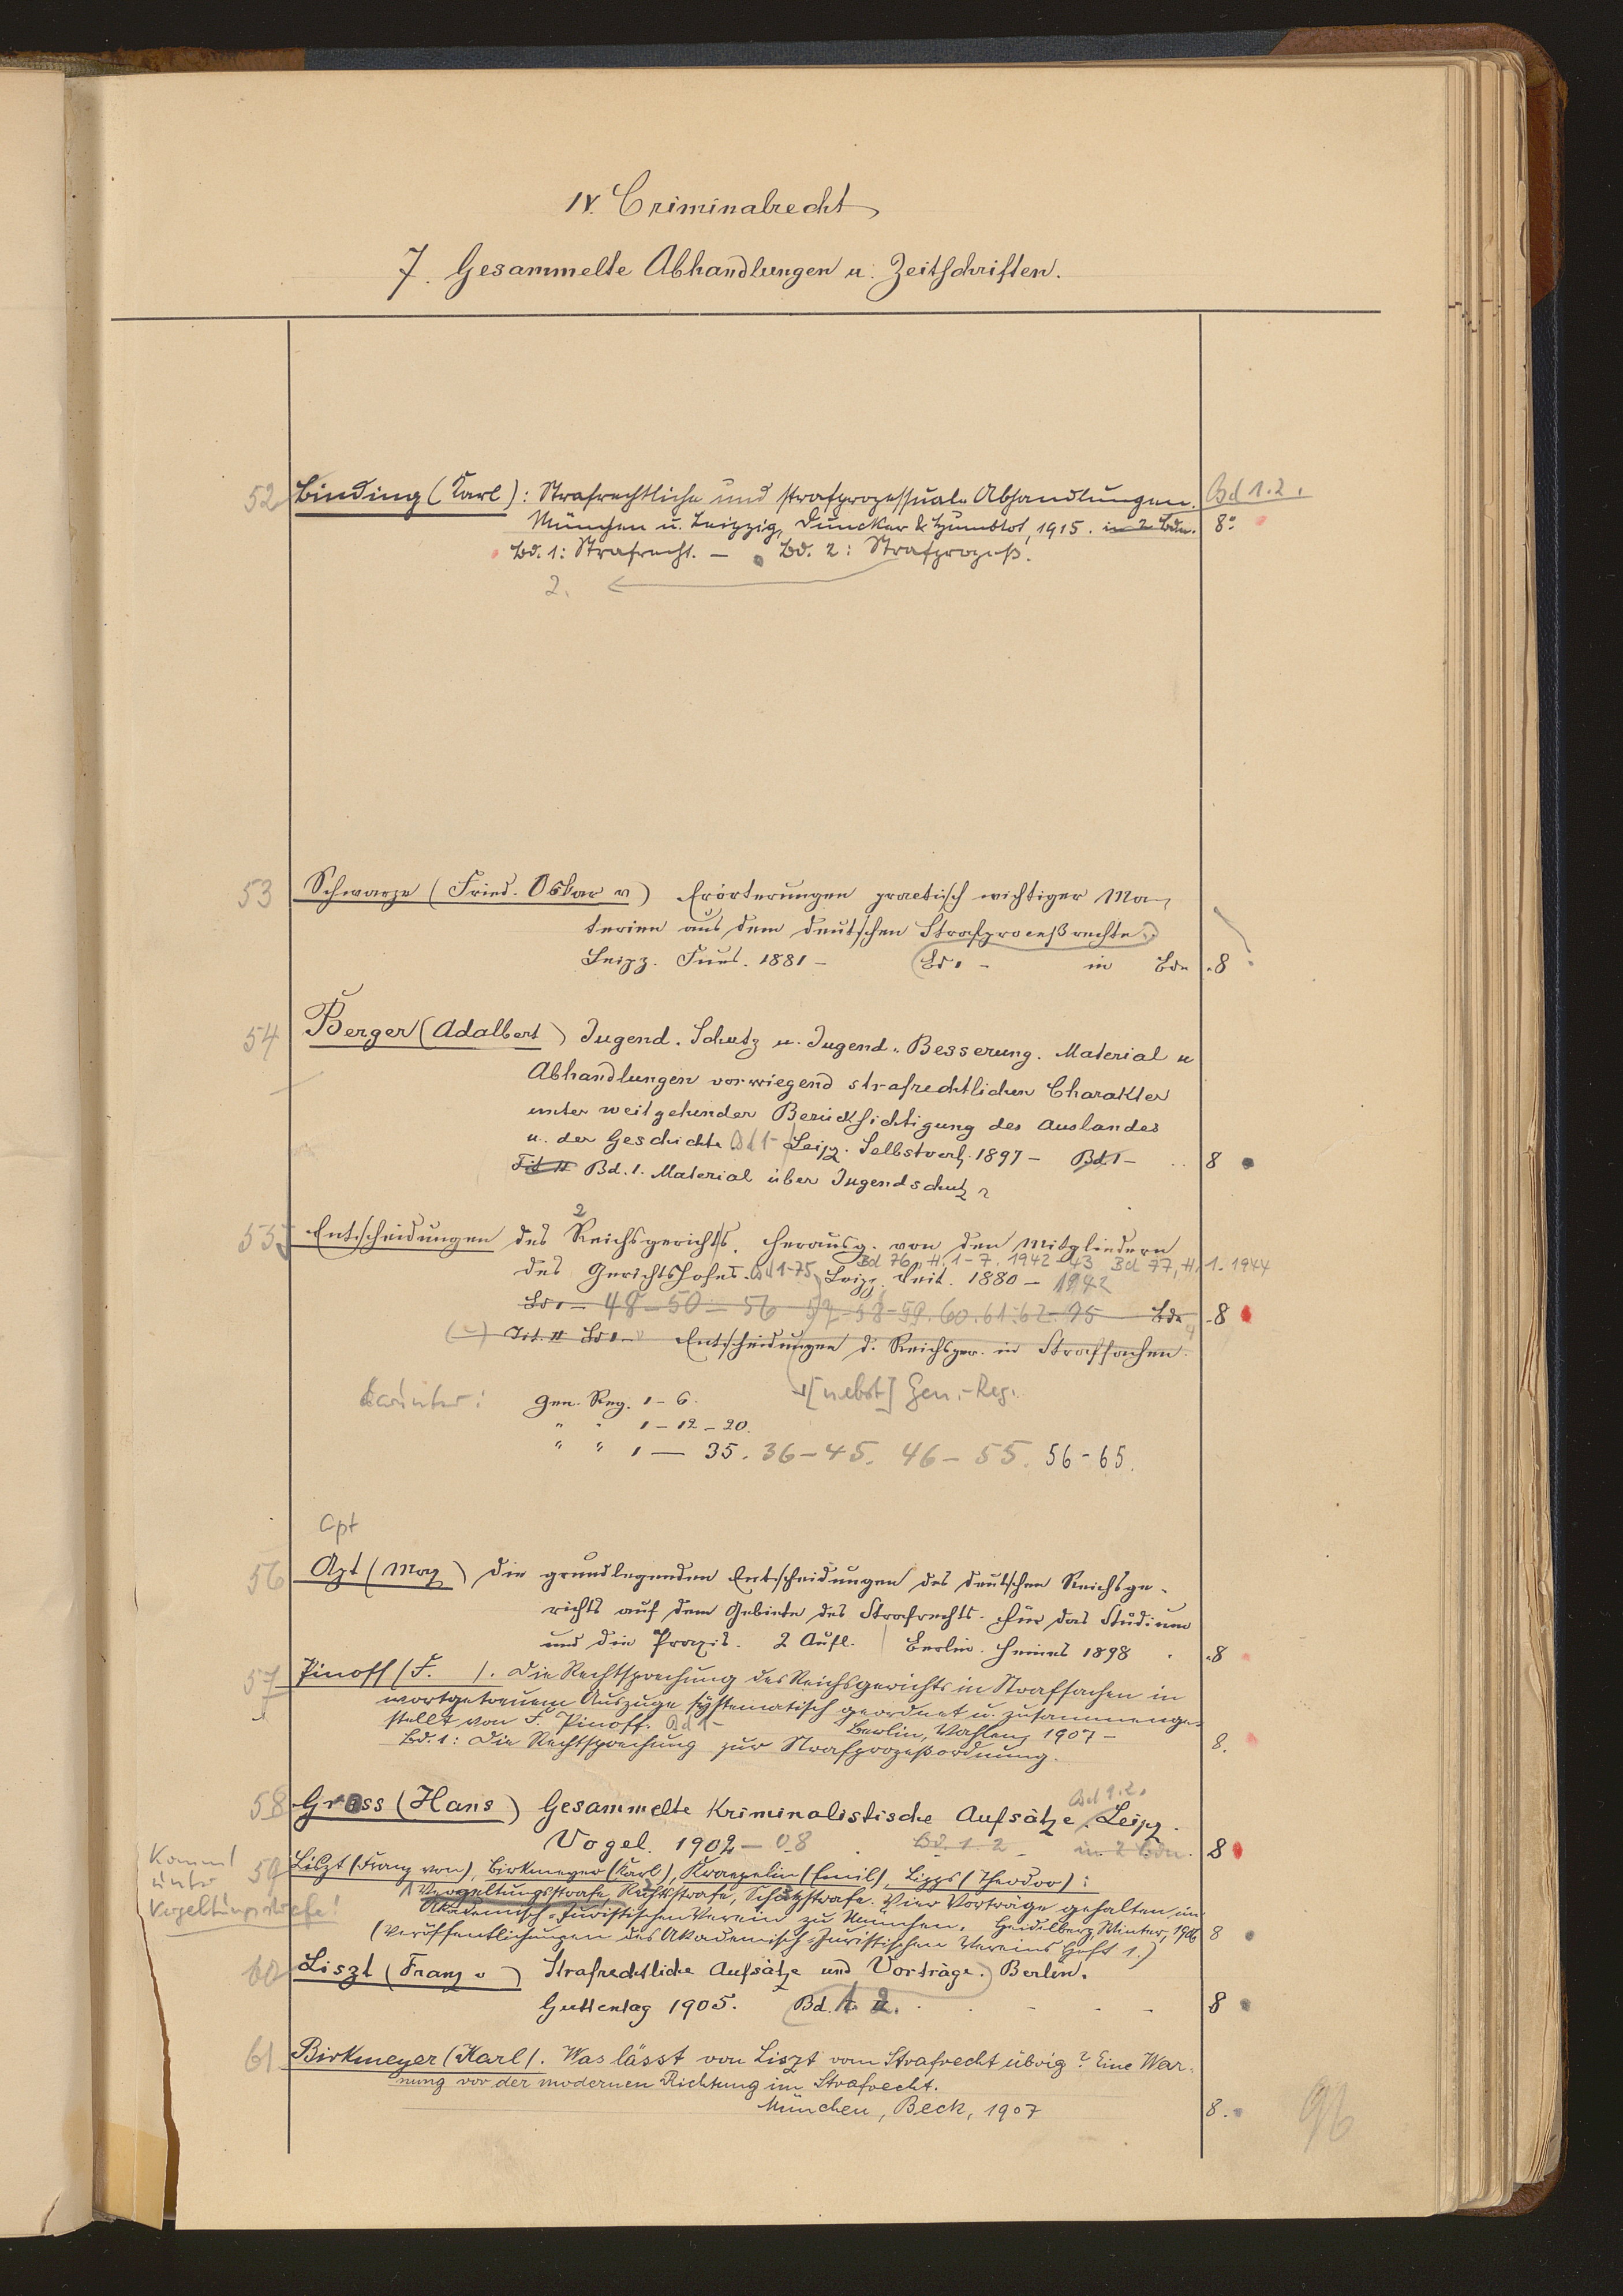 IV. Criminalrecht
7. Gesammelte Abhandlungen u. Zeitschriften.
52 Binding (Karl): Strafrechtliche und strafprozessuale Abhandlungen. Bd 1.2.
München u. Leipzig, Duncker & Humblot, 1915. in 2 Bdn. 8°
Bd. 1: Strafrecht. — Bd. 2: Strafprozeß.
2.
53 Schwarze (Fried. Oskar v) Erörterungen practisch wichtiger Ma-
terien aus dem deutschen Strafproceßrechte.
Leipz. Fues. 1881 – Bd 1 – in Bdn 8
54 Berger (Adalbert) Jugend-Schutz u. Jugend-Besserung. Material u
Abhandlungen vorwiegend strafrechtlichen Charakter
unter weitgehender Berücksichtigung des Auslandes
u. der Geschichte Bd 1- Leipz. Selbstverl. 1897 – Bd. 1 – 8
Tit. II Bd. 1. Material über Jugendschutz
55 Entscheidungen des Reichsgerichts. Herausg. von den Mitgliedern
2
Bd 76, H. 1-7. 1942-43 Bd 77, H. 1. 1944
des Gerichtshofes. Bd 1-75 Leipz. Veit. 1880 – 1942
Bd 1 – 48 – 50 – 56 57-58-59. 60. 61. 62-75 Bdn 8
Tit. II Bd 1 – Entscheidungen d. Reichsger. in Strafsachen.
darunter: Gen. Reg. 1 – 6. [nebst] Gen.-Reg.
" " 1 – 12 – 20.
" " 1 — 35. 36 – 45. 46 – 55. 56 - 65.
Apt
56 Apt (Max) Die grundlegenden Entscheidungen des deutschen Reichsge-
richts auf dem Gebiete des Strafrechts. Für das Studium
und die Praxis. 2 Aufl. Berlin. Heines 1898 8
57 Pinoff (F. ). Die Rechtsprechung des Reichsgerichts in Strafsachen in
wortgetreuem Auszuge systematisch geordnet u. zusammenge-
stellt von F. Pinoff. Bd 1- Berlin, Vahlen, 1907 – 8.
Bd. 1: Die Rechtsprechung zur Strafprozeßordnung.
58 Gross (Hans) Gesammelte Kriminalistische Aufsätze. Bd 1.2. Leipz.
Vogel. 1902 – 08 Bd. 1 2 in 2 Bdn. 8
Kommt
unter
Vergeltungsstrafe!
59 Liszt (Franz von), Birkmeyer (Karl), Kraepelin (Emil), Lipps (Theodor):
Vergeltungsstrafe, Rechtsstrafe, Schutzstrafe. Vier Vorträge gehalten im
Akademisch-Juristischen Verein zu München. Heidelberg, Winter, 1906 8
(Veröffentlichungen des Akademisch-Juristischen Vereins Heft 1.)
60 Liszt (Franz v) Strafrechtliche Aufsätze und Vorträge. Berlin.
Guttentag 1905. Bd. 1. 2. 8
61 Birkmeyer (Karl). Was lässt von Liszt vom Strafrecht übrig? Eine War-
nung vor der modernen Richtung im Strafrecht.
München, Beck, 1907 8.
96